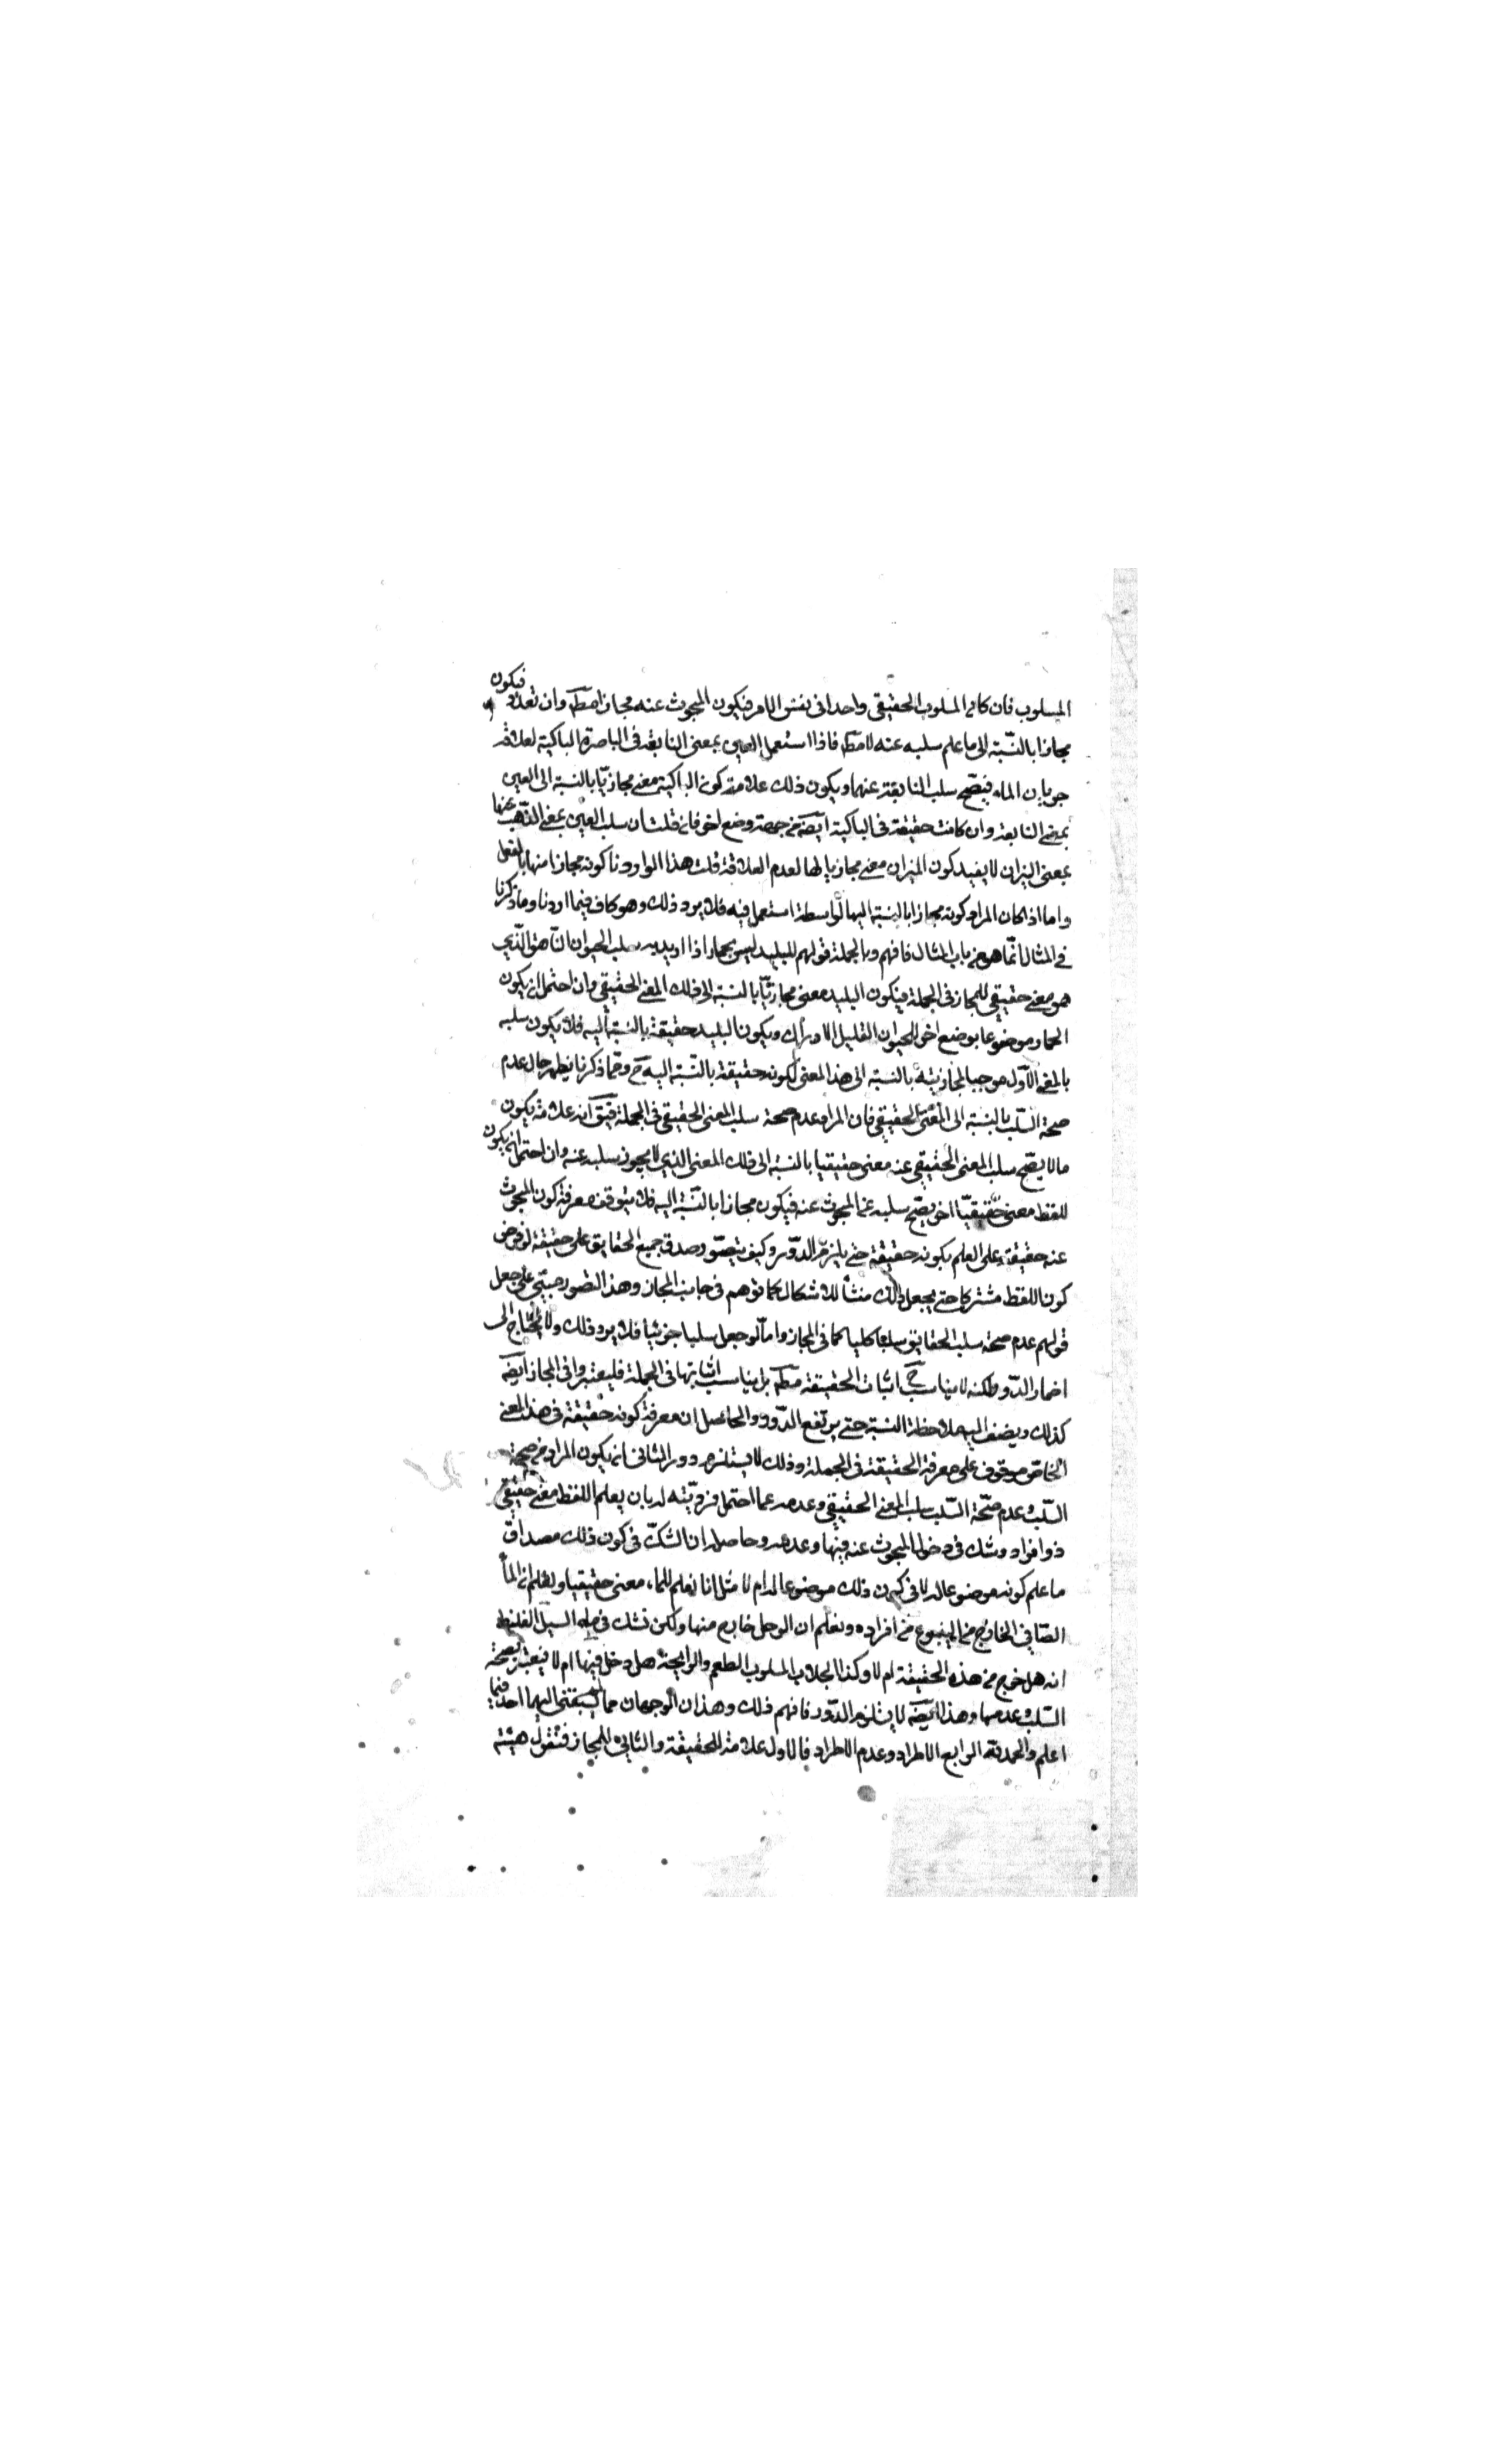 المسلوب فان كان المسلوب الحقيقي واحدا فى نفس الامر فيكون المبحوث عنه مجازا مطم وان تعدد فيكون
مجازا بالنسبة الى ما علم سلبه عنه لا مطم فاذا استعمل العين بمعنى النابعة فى الباصرة الباكية لعلاقة
جريان الماء فيصح سلب النابعة عنها ويكون ذلك علامة كون الباكية معنى مجازيا بالنسبة الى العين
بمعنى النابعة وان كانت حقيقة فى الباكية ايضه من جهة وضع اخر فان قلت ان سلب العين بمعنى الذهب عنها
بمعنى الميزان لا يفيد كون الميزان معنى مجازيا لها لعدم العلاقة قلت هذا لو اردنا كونه مجازا منها بالفعل
واما اذا كان المراد كونه مجازا بالنسبة اليها لو استعمل فيه فلا يرد ذلك وهو كاف فيما اردنا وما ذكرنا
فى المثال انما هو من باب المثال فافهم وبالجملة قولهم للبليد ليس بحمار اذا اريد به سلب الحيوان الناهق الذي
هو معنى حقيقي للحمار فى الجملة فيكون البليد معنى مجازيا بالنسبة الى ذلك المعنى الحقيقي وان احتمل ان يكون
الحمار موضوعا بوضع اخر للحيوان القليل الادراك ويكون البليد حقيقة بالنسبة اليه فلا يكون سلبه
بالمعنى الاول موجبا لمجازيته بالنسبة الى هذا المعنى لكونه حقيقة بالنسبة اليه ح ومما ذكرنا يظهر حال عدم
صحة السلب بالنسبة الى المعنى الحقيقي فان المراد عدم صحة سلب المعنى الحقيقي فى الجملة فيق انه علامة يكون
ما لا يصح سلب المعنى الحقيقي عنه معنى حقيقيا بالنسبة الى ذلك المعنى الذي لا يجوز سلبه عنه وان احتمل ان يكون
للفظ معنى حقيقيا اخر يصح سلبه عن المبحوث عنه فيكون مجازا بالنسبة اليه فلا يتوقف معرفة كون المبحوث
عنه حقيقة على العلم بكونه حقيقة حتى يلزم الدور وكيف يتصور صدق جميع الحقايق على حقيقة لو فرض
كون اللفظ مشتركا حتى يجعل ذلك منشأ للاشكال كما توهم فى جانب المجاز وهذا التصور مبنى على جعل
قولهم عدم صحة سلب الحقايق سلبا كليا كما فى المجاز واما لو جعل سلبا جزئيا فلا يرد ذلك ولا يحتاج الى
اضمار الدور ولكنه لا يناسب ح اثبات الحقيقة مطم بل يناسب اثباتها فى الجملة فليعتبروا فى المجاز ايضه
كذلك ويضف اليه ملاحظة النسبة حتى يرتفع الدور والحاصل ان معرفة كونه حقيقة فى هذا المعنى
الخاص موقوف على معرفة الحقيقة فى الجملة وذلك لا يستلزم دورا الثانى ان يكون المراد من صحة
السلب وعدم صحة السلب سلب المعنى الحقيقي وعدمه عما احتمل فرديته له بان يعلم اللفظ معنى حقيقي
ذو افراد وشك فى دخول المبحوث عنه فيها وعدمه وحاصله ان الشك فى كون ذلك مصداق
ما علم كونه موضوعا له لا فى كون ذلك موضوعا له ام لا مثل انا نعلم للماء معنى حقيقيا ونعلم ان الماء
الصافى الخارج من الينبوع من افراده ونعلم ان الوحل خارج منها ولكن نشك فى ماء السيل الغليظ
انه هل خرج من هذه الحقيقة ام لا وكذا الجلاب المسلوب الطعم والرايحة هل دخل فيها ام لا فيعتبر بصحة
السلب وعدمها وهذا ايضه لا يستلزم الدور فافهم ذلك وهذان الوجهان مما لم يسبقنى اليهما احد فيما
اعلم والحمد لله الرابع الاطراد وعدم الاطراد فالاول علامة للحقيقة والثانى للمجاز فنقول هيئة